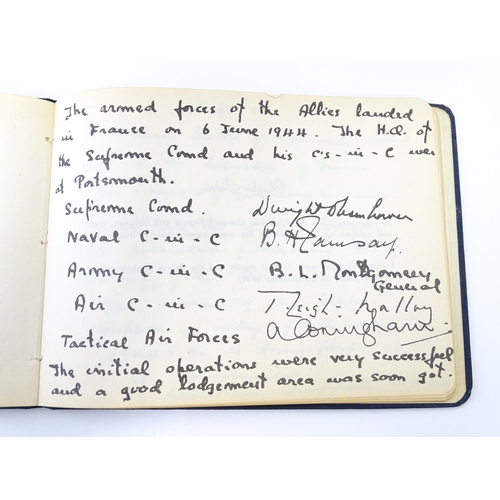 The armed forces of the Allies landed
in France on 6 June 1944. The H.Q. of
the Supreme Comd and his C's-in-C were
at Portsmouth.
Supreme Comd. Dwight D Eisenhower
Naval C-in-C B. H. Ramsay.
Army C-in-C B. L. Montgomery
General
Air C-in-C T Leigh-Mallory
Tactical Air Forces A Coningham.
The initial operations were very successful
and a good lodgement area was soon got.